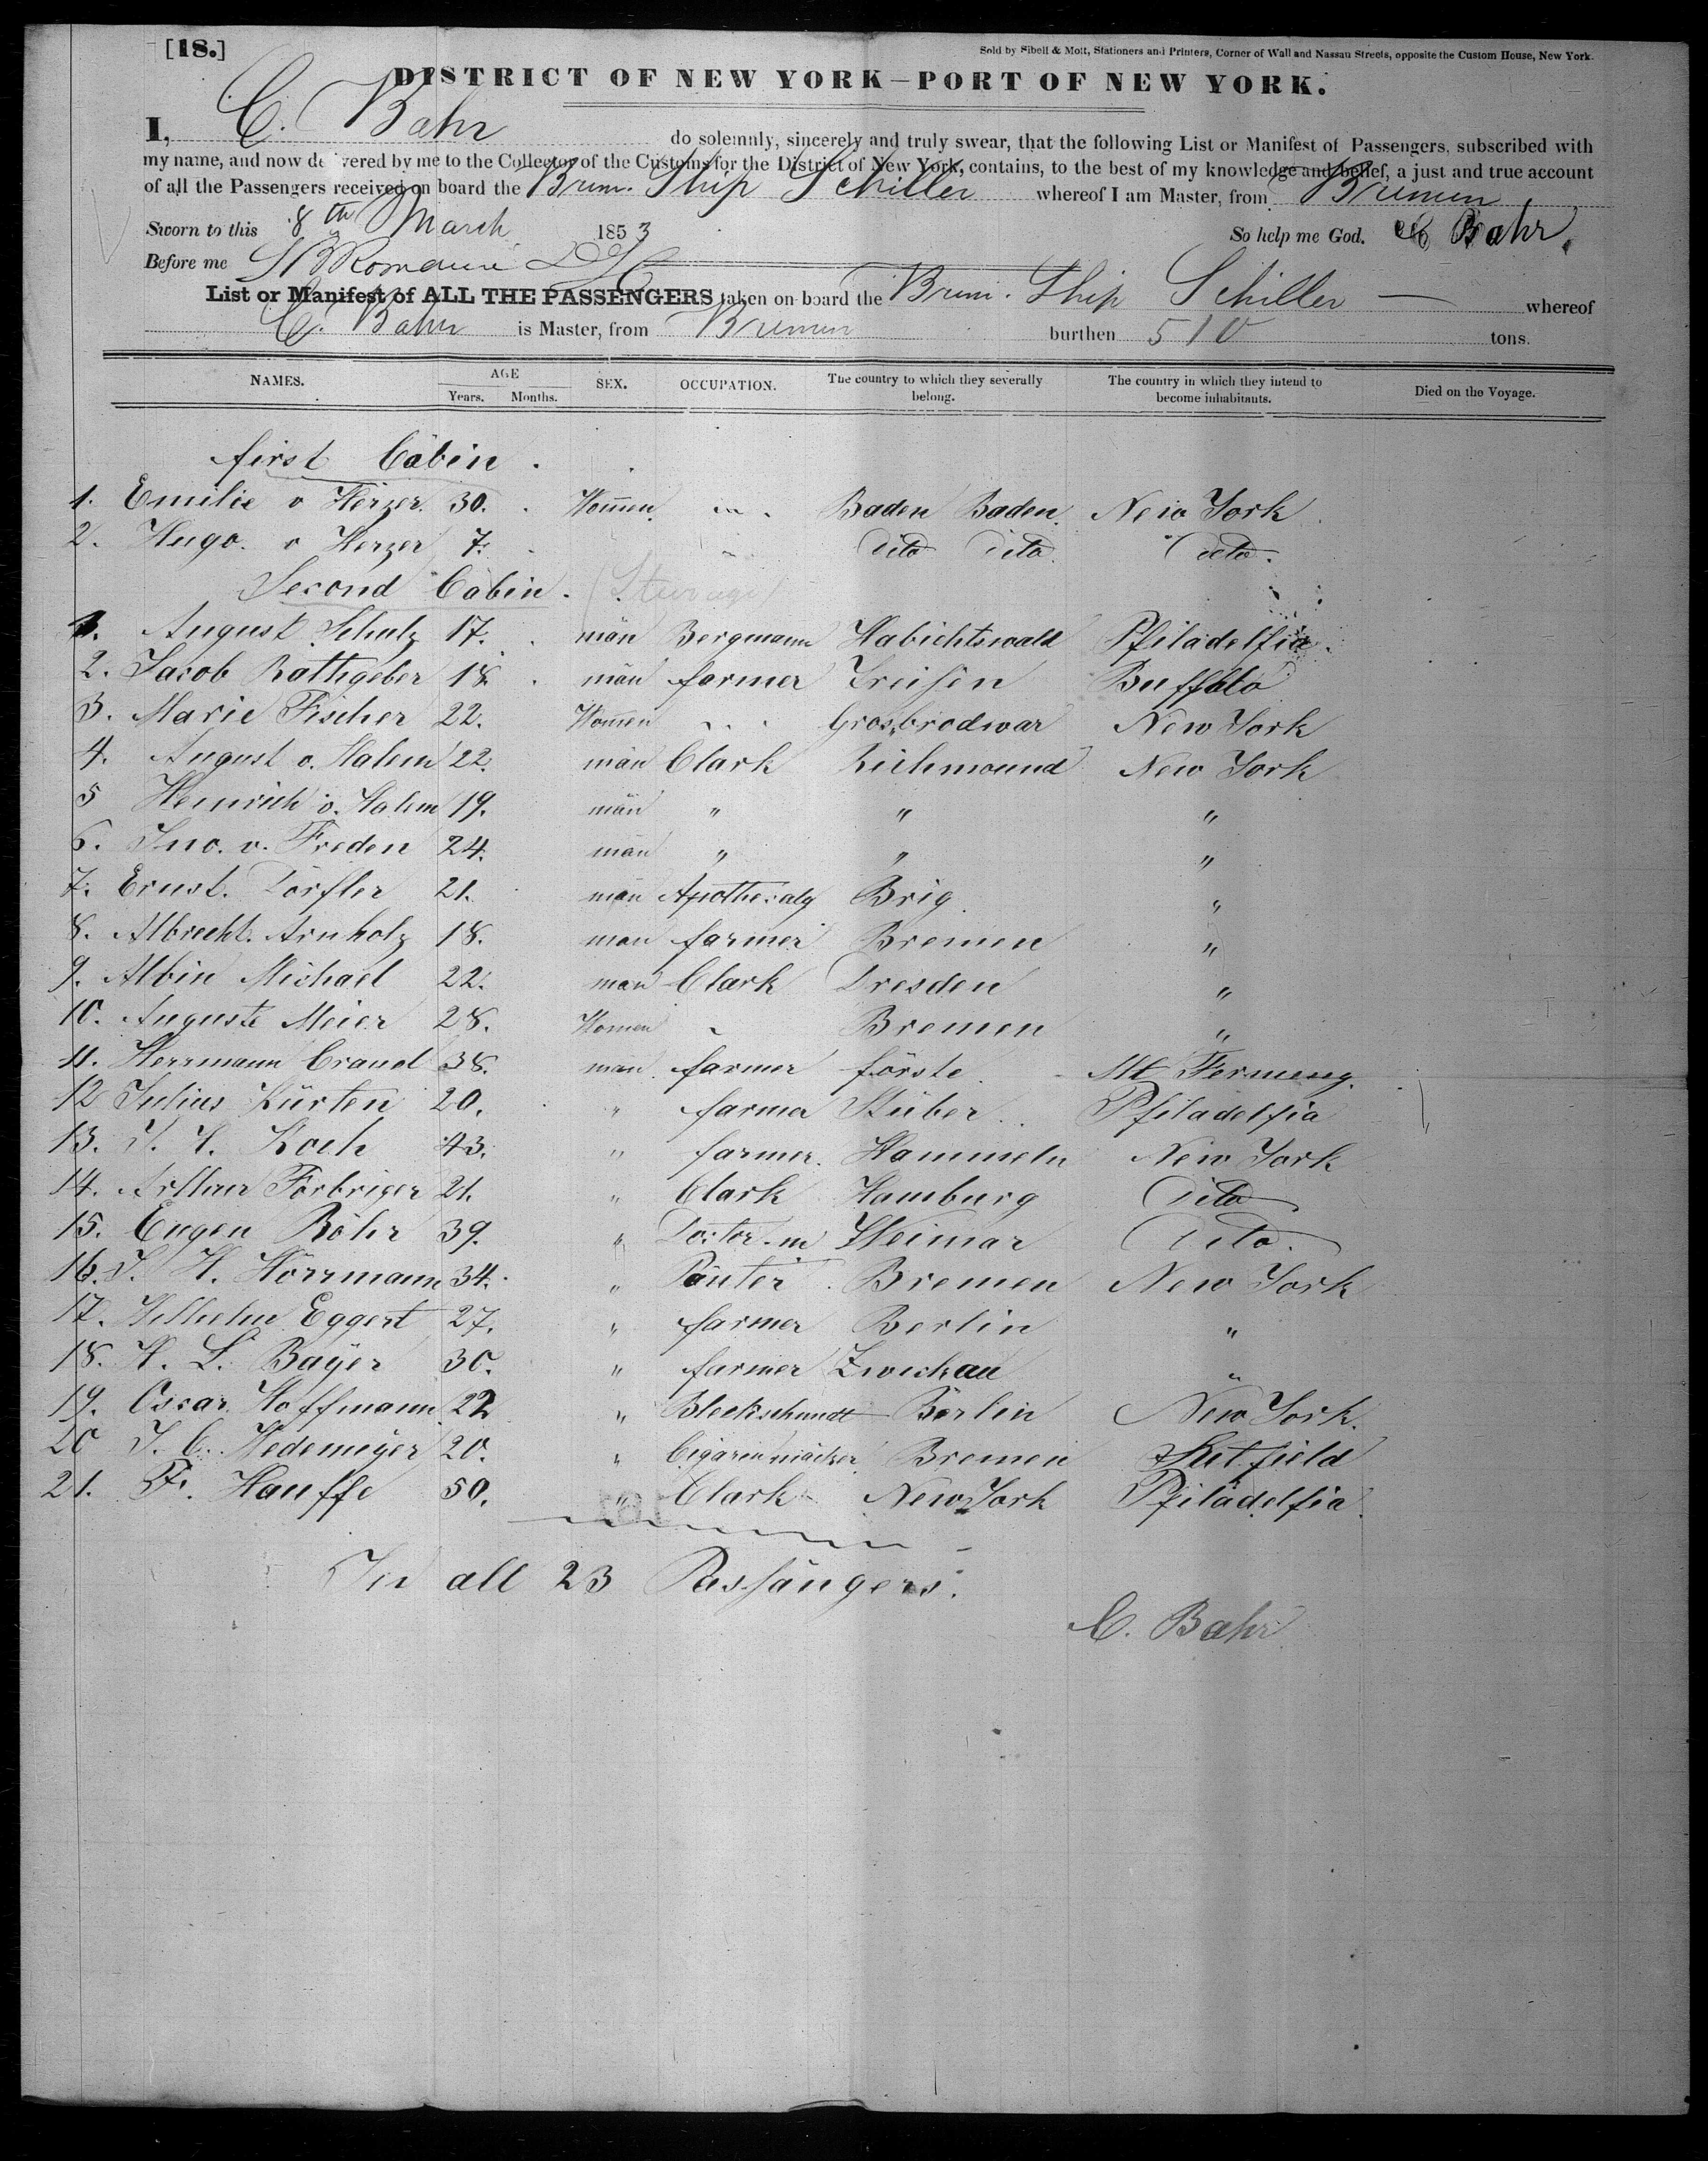 [18.]
Sold by Sibell & Mott, Stationers and Printers, Corner of Wall and Nassau Streets, opposite the Custom House, New York.
DISTRICT OF NEW YORK—PORT OF NEW YORK.
I, C. Bahr do solemnly, sincerely and truly swear, that the following List or Manifest of Passengers, subscribed with
my name, and now delivered by me to the Collector of the Customs for the District of New York, contains, to the best of my knowledge and belief, a just and true account
of all the Passengers received on board the Brem. Ship Schiller whereof I am Master, from Bremen
Sworn to this 8th March 1853 So help me God. C Bahr.
Before me
List or Manifest of ALL THE PASSENGERS taken on board the Brem. Ship Schiller — whereof
C. Bahr is Master, from Bremen burthen 510 tons.
NAMES. AGE Years. Months. SEX. OCCUPATION. The country to which they severally belong. The country in which they intend to become inhabitants. Died on the Voyage.
first Cabin.
1. Emilie v Herzer. 30. Women. Baden Baden. New York
2. Hugo. v Herzer 7. dito dito. dito.
Second Cabin. (Steerage)
1. August Schulz 17. män Bergmann Habichtswald Pfiladelfia.
2. Jacob Rathgeber 18. män farmer Buffalo
3. Marie Fischer 22. Women New York
4. August v. Halem 22. män Clark Richmound New York
5 Heinrich v. Halem 19. män " " "
6. Jno. v. Freden 24. män " " "
7. Ernst. Dörfler 21. män Brig. "
8. Albrecht. Arnholz 18. man farmer Bremen "
9. Albin Michael 22. man Clark Dresden "
10. Auguste Meier 28. Women Bremen "
11. Herrmann Crauel 38. män. farmer förste
12 Julius Kürten 20. " farmer Stüber. Pfiladelfia
13. Koch 43. " farmer. Hammeln New York
14. Arthur Förbriger 21. " Clark Hamburg dito
15. Eugen Röhr 39. " Weimar dito.
16. J. H. Hörrmann 34. " Bremen New York
17. Wilhelm Eggert 27. " farmer Berlin "
18. H. L. Bayer 30. " farmer Zwickau "
19. Oscar Hoffmann 22 " Bleckschmidt Berlin New York.
20 J. C. Wedemeyer 20. " Cigarenmäcker Bremen
21. F. Hauffe 50. " Clark New York Pfiladelfia.
In all 23 Passängers.
C. Bahr